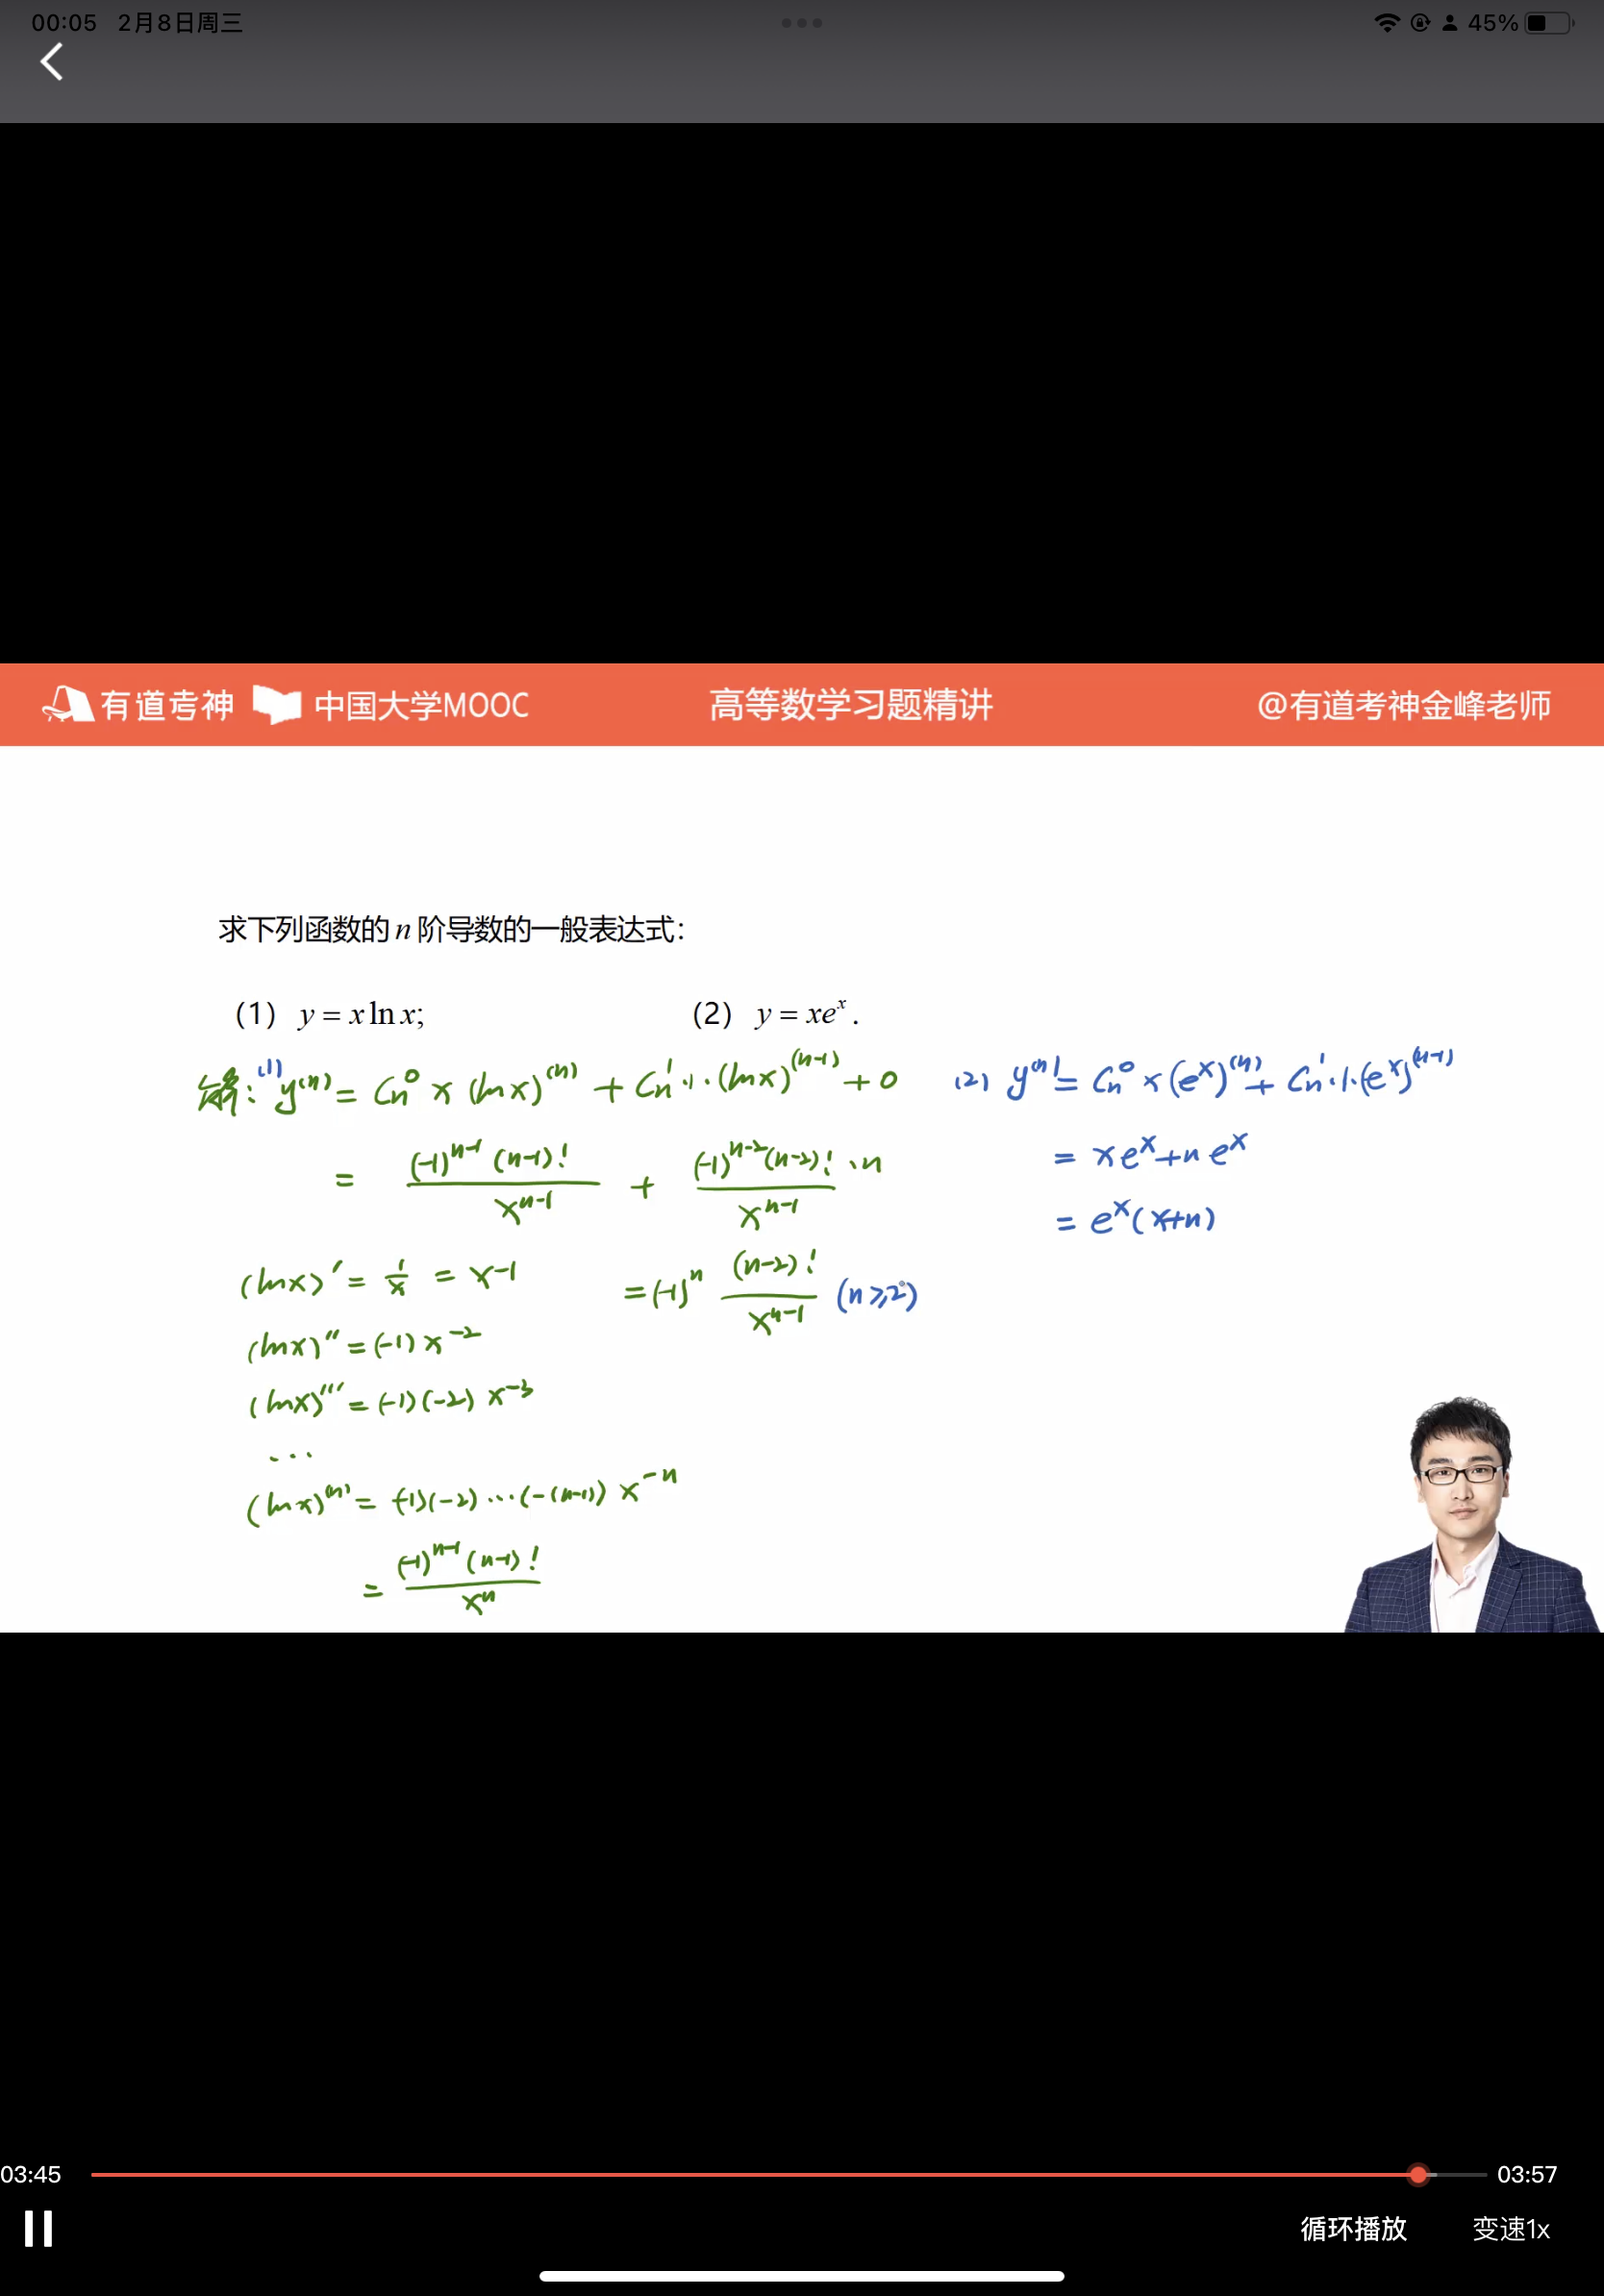 00:05 2月8日周三 45%
有道考神 中国大学MOOC 高等数学习题精讲 @有道考神金峰老师
求下列函数的 n 阶导数的一般表达式：
（1） y = x ln x; （2） y = xeˣ .
解：(1) y⁽ⁿ⁾ = Cn⁰ x (ln x)⁽ⁿ⁾ + Cn¹·1·(ln x)⁽ⁿ⁻¹⁾ + 0
= (-1)ⁿ⁻¹ (n-1)! / xⁿ⁻¹ + (-1)ⁿ⁻² (n-2)! / xⁿ⁻¹ · n
= (-1)ⁿ (n-2)! / xⁿ⁻¹ (n≥2)
(ln x)′ = 1/x = x⁻¹
(ln x)″ = (-1) x⁻²
(ln x)‴ = (-1)(-2) x⁻³
...
(ln x)⁽ⁿ⁾ = (-1)(-2)...(-(n-1)) x⁻ⁿ
= (-1)ⁿ⁻¹ (n-1)! / xⁿ
(2) y⁽ⁿ⁾ = Cn⁰ x (eˣ)⁽ⁿ⁾ + Cn¹·1·(eˣ)⁽ⁿ⁻¹⁾
= x eˣ + n eˣ
= eˣ (x+n)
03:45 03:57
循环播放 变速1x